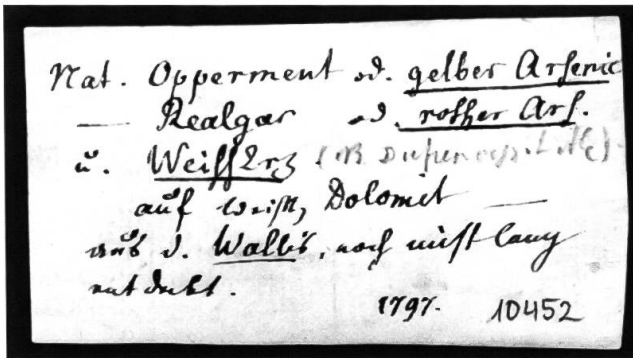 Nat. Opperment od. gelber Arsenic
— Realgar od. rother Ars.
u. WeissErz
auf weiss, Dolomit —
aus d. Wallis, noch nicht lang
entdekt.
1797. 10452